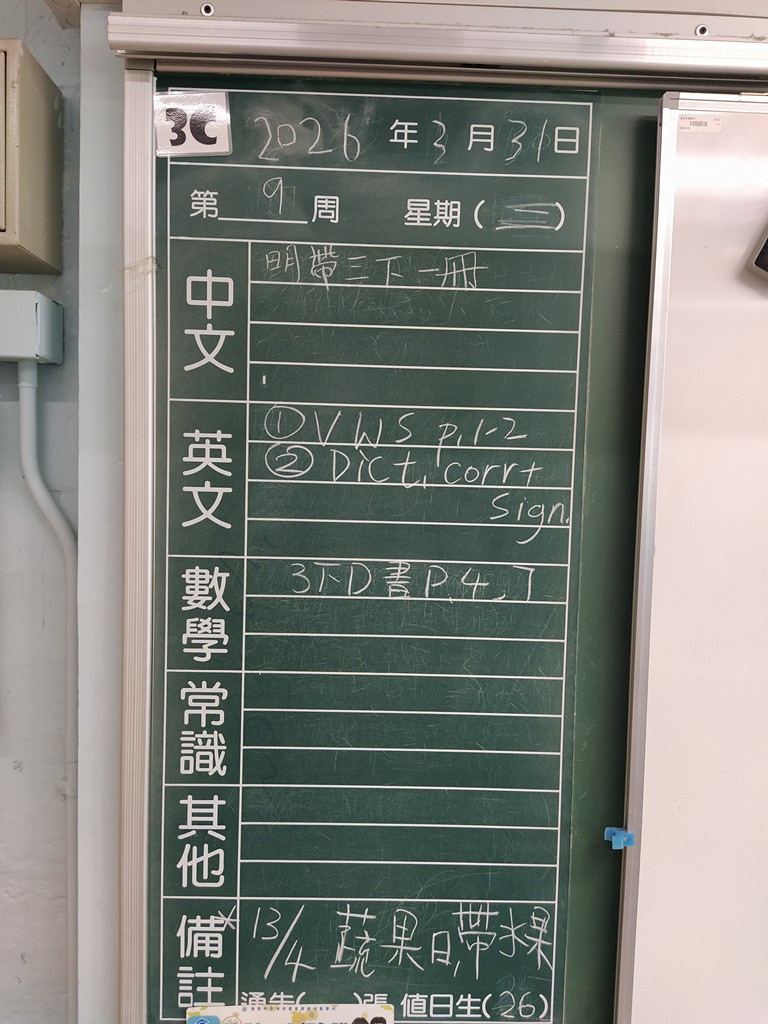 3C
2026 年 3 月 31 日
第 9 周 星期 (二)
中文
明帶三下一冊
英文
① V W S p.1-2
② Dict. corr +
sign.
數學
3下D 書 P.4,
常識
其他
備註
* 13/4 蔬果日,帶水果
通告( )張 值日生(26)